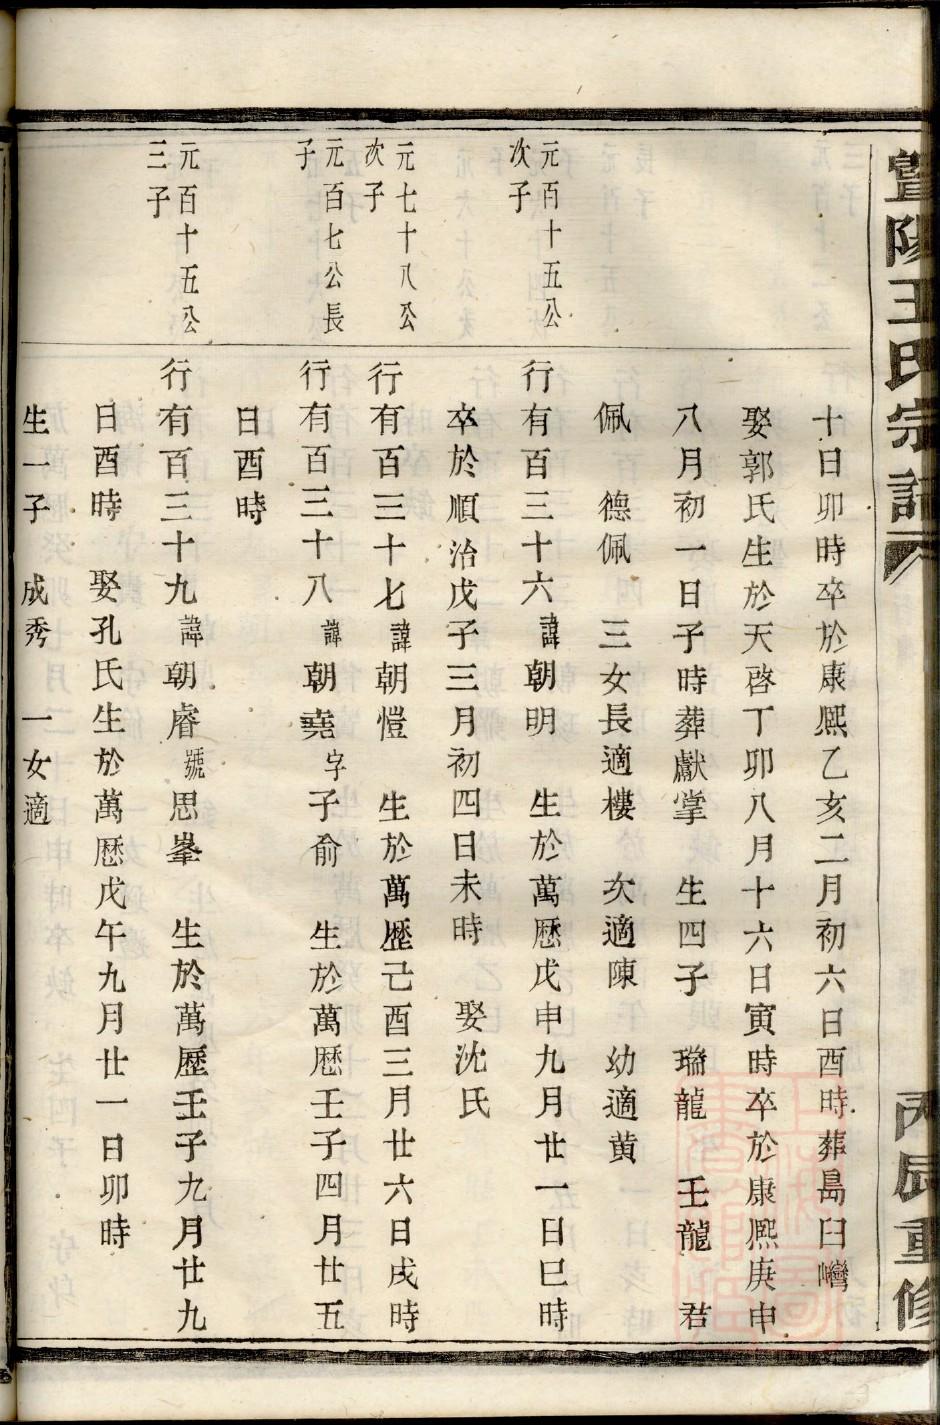 暨陽王氏宗譜
丙辰重修
十日卯時卒於康熙乙亥二月初六日酉時葬島臼巒
娶郭氏生於天啓丁卯八月十六日寅時卒於康熙庚申
八月初一日子時葬獻掌 生四子 瑞龍 壬龍 君
佩 德佩 三女長適樓 次適陳 幼適黄
元百十五公
次子
行有百三十六諱朝明 生於萬曆戊申九月廿一日巳時
卒於順治戊子三月初四日未時 娶沈氏
元七十八公
次子
行有百三十七諱朝愷 生於萬歷己酉三月廿六日戌時
元百七公長
子
行有百三十八諱朝堯字子俞 生於萬曆壬子四月廿五
日酉時
元百十五公
三子
行有百三十九諱朝睿號思峯 生於萬歷壬子九月廿九
日酉時 娶孔氏生於萬曆戊午九月廿一日卯時
生一子 成秀 一女適